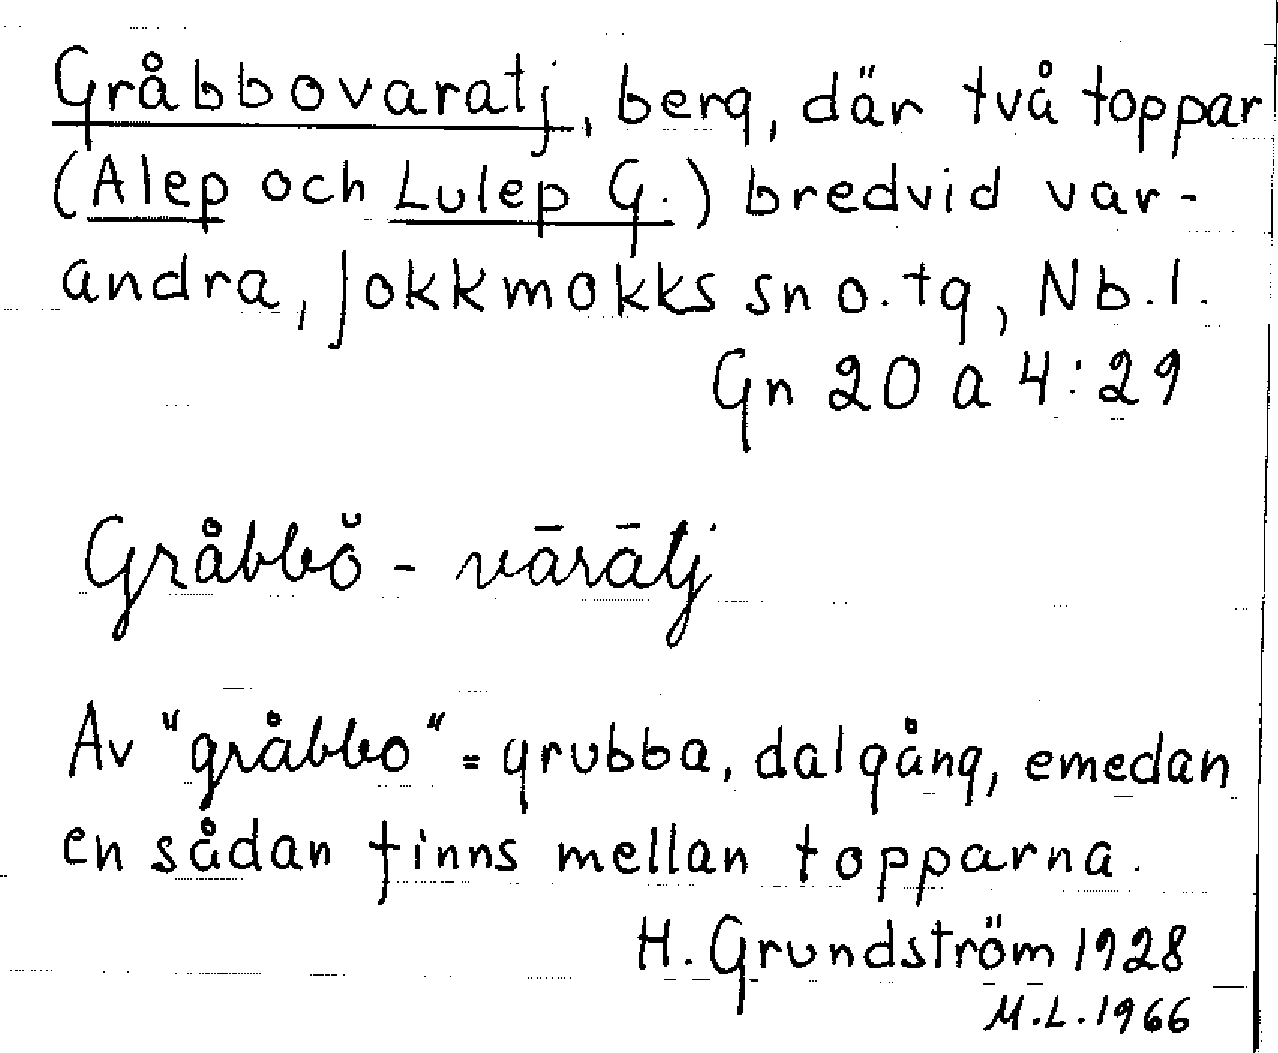 Gråbbovaratj, berg, där två toppar
(Alep och Lulep G.) bredvid var-
andra, Jokkmokks sn o. tg, Nb.l.
Gn 20 a 4:29
Gråbbŏ - vārātj
Av "gråbbo" = grubba, dalgång, emedan
en sådan finns mellan topparna.
H. Grundström 1928
M.L. 1966